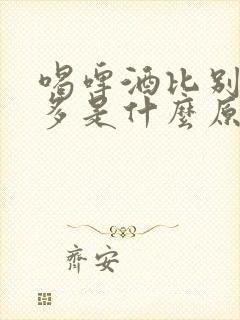 喝啤酒比别
多是什麼原
齊安